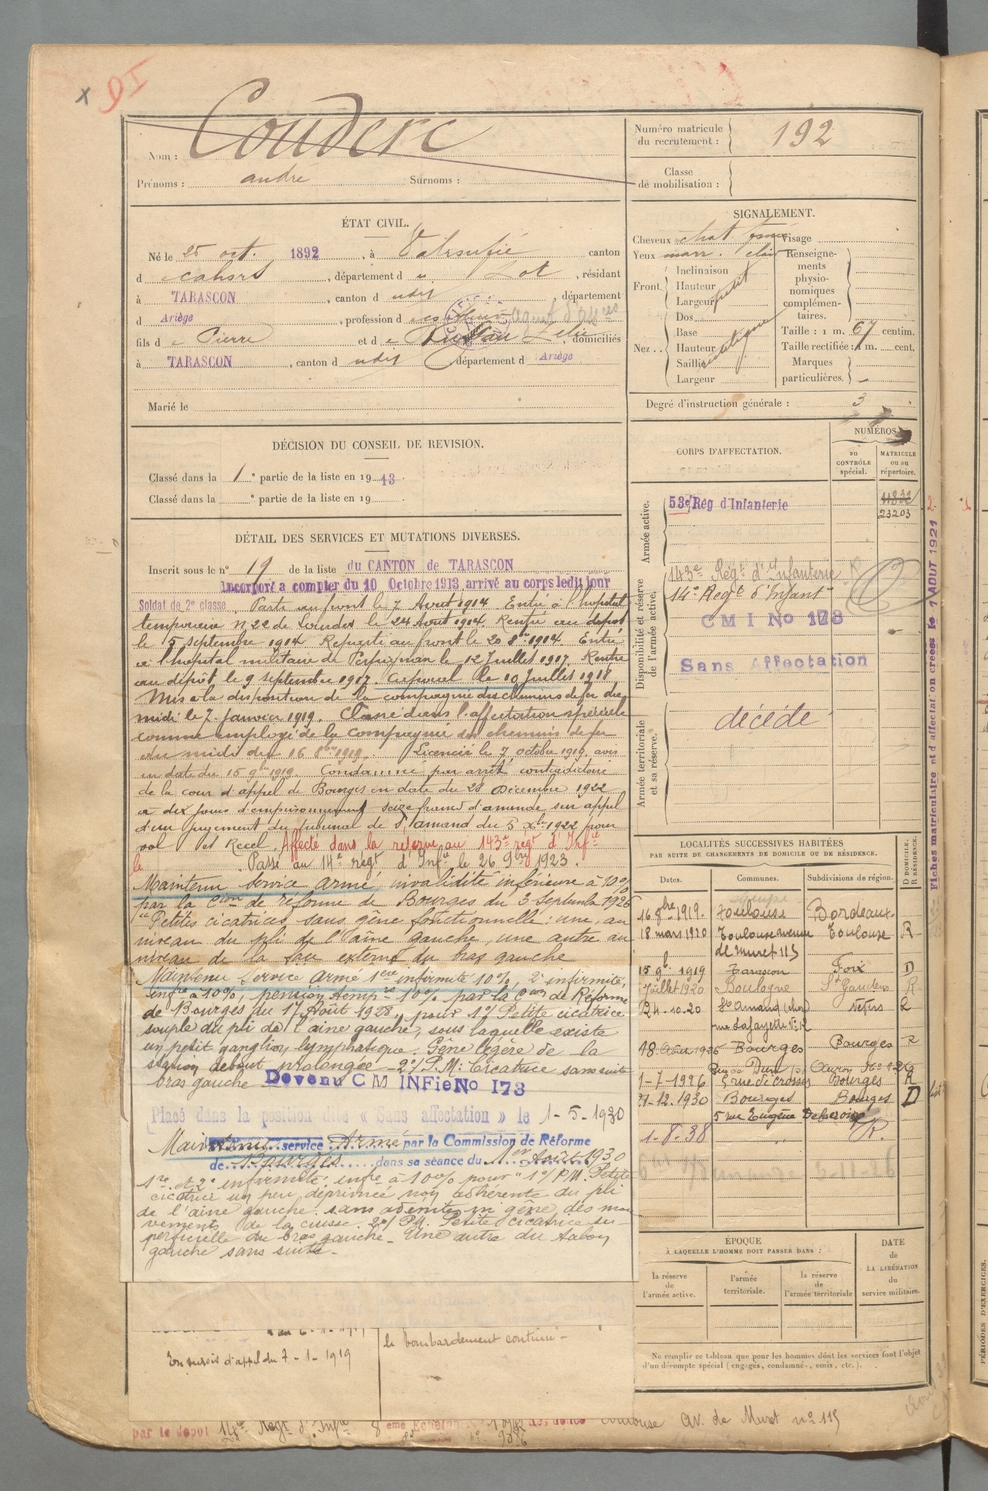 x 91
Nom : Couderc
Prénoms : andre Surnoms :
Numéro matricule du recrutement : 192
Classe de mobilisation :
ÉTAT CIVIL.
Né le 25 oct. 1892, à canton
d Cahors, département d u Lot, résidant
à TARASCON, canton d udit département
d Ariège, profession d
fils d e Pierre et d e domiciliés
à TARASCON, canton d udit département d Ariège
Marié le
SIGNALEMENT.
Cheveux chat Visage
Yeux marr. clair
Front. Inclinaison
Hauteur
Largeur petit
Nez .. Dos
Base
Hauteur
Saillie
Largeur
Renseignements physionomiques complémentaires.
Taille : 1 m. 67 centim.
Taille rectifiée : 1 m. cent.
Marques particulières. -
Degré d'instruction générale : 3
DÉCISION DU CONSEIL DE REVISION.
Classé dans la 1e partie de la liste en 1913.
Classé dans la e partie de la liste en 19
DÉTAIL DES SERVICES ET MUTATIONS DIVERSES.
Inscrit sous le n° 19 de la liste du CANTON de TARASCON
Incorporé a compter du 10 Octobre 1913 arrivé au corps ledit jour
Soldat de 2e classe. Parti au front le 7 Août 1914. Entré à l'hopital
temporaire n 22 de le 24 Août 1914. Rentré au dépôt
le 5 septembre 1914 Reparti au front le 20 8bre 1914. Entré
à l'hopital militaire de Perpignan le 12 Juillet 1917. Rentré
au dépôt le 9 septembre 1917 Caporal le 10 Juillet 1918
Mis a la disposition de la compagnie des chemins de fer du
midi le 7 Janvier 1919. Classé dans l'affectation spéciale
comme employé de la Compagnie des chemins de fer
du midi du 16 8bre 1919. Licencié le 7 octobre 1919, avis
en date du 15 9bre 1919. Condamné par arrêt contradictoire
de la cour d'appel de Bourges en date du 28 Décembre 1922
a dix jours d'emprisonnement seize francs d'amende, sur appel
d'un jugement du tribunal de St amand du 5 Xbre 1922 pour
vol et Recel. Affecté dans la réserve au 143e regt d'Infie
le Passé au 14e regt d'Infie le 26 9bre 1923.
Maintenu service armé, invalidité inférieure à 10%
par la Con de réforme de Bourges du 3 Septembre 1926
"Petites cicatrices sans gêne fonctionnelle : une, au
niveau du pli de l'aine gauche, une autre au
niveau de la face externe du bras gauche
Maintenu Service Armé 1ere infirmité 10%, 2e infirmité,
infre à 10%, pension tempre 10% par la Con de Réforme
de Bourges du 17 Août 1928, pour 1°/ Petite cicatrice
souple du pli de l'aine gauche, sous laquelle existe
un petit ganglion lymphatique. Gêne légère de la
station debout prolongée - 2°/ P.M. Cicatrice sans suite
bras gauche Devenu C M INFie No 173
Placé dans la position dite « Sans affectation » le 1-5-1930
Maintenu service Armé par la Commission de Réforme
de Bourges dans sa séance du 1er Août 1930
1re et 2e infirmité, infre à 10% pour "1°/ P.M. Petite
cicatrice un peu déprimée non adhérente du pli
de l'aine gauche sans adénite ni gêne des mou
vements de la cuisse. 2°/ PM. Petite cicatrice su-
perficielle du bras gauche - Une autre du talon
gauche sans suite -
En sursis d'appel du 7-1-1919
le bombardement continu -
par le dépôt 14e Regt d'Infie 8eme Toulouse av. de Muret n° 115
CORPS D'AFFECTATION.
NUMÉROS
DU CONTRÔLE spécial.
MATRICULE ou au répertoire.
Armée active.
53e Rég d'Infanterie 11832
23203
Disponibilité et réserve de l'armée active.
143e Régt d'Infanterie R
14e Régt d'Infant
C M I No 173
Sans Affectation
Armée territoriale et sa réserve.
décédé
Fiches matriculaire et d'affectation créées le 1 AOUT 1921
LOCALITÉS SUCCESSIVES HABITÉES
PAR SUITE DE CHANGEMENTS DE DOMICILE OU DE RÉSIDENCE.
Dates. Communes. Subdivisions de région. D DOMICILE. R RÉSIDENCE.
16 9bre 1919. Toulouse Bordeaux
18 mars 1920 Toulouse avenue de Muret 115 Toulouse R
15 9bre 1919 Tarascon Foix D
Juillet 1920 Boulogne St Gaudens R
24-10-20 St Amand (cher) rue Lafayette Nevers R
18 1926 Bourges Bourges R
1-7-1926 5 rue de crosses Bourges R
21-12-1930 Bourges Bourges D
5 rue Eugène
1-8-38 R.
ÉPOQUE
À LAQUELLE L'HOMME DOIT PASSER DANS :
la réserve de l'armée active.
l'armée territoriale.
la réserve de l'armée territoriale
DATE de LA LIBÉRATION du service militaire.
Ne remplir ce tableau que pour les hommes dont les services font l'objet
d'un décompte spécial (engagés, condamnés, omis, etc.).
PÉRIODES D'EXERCICES.